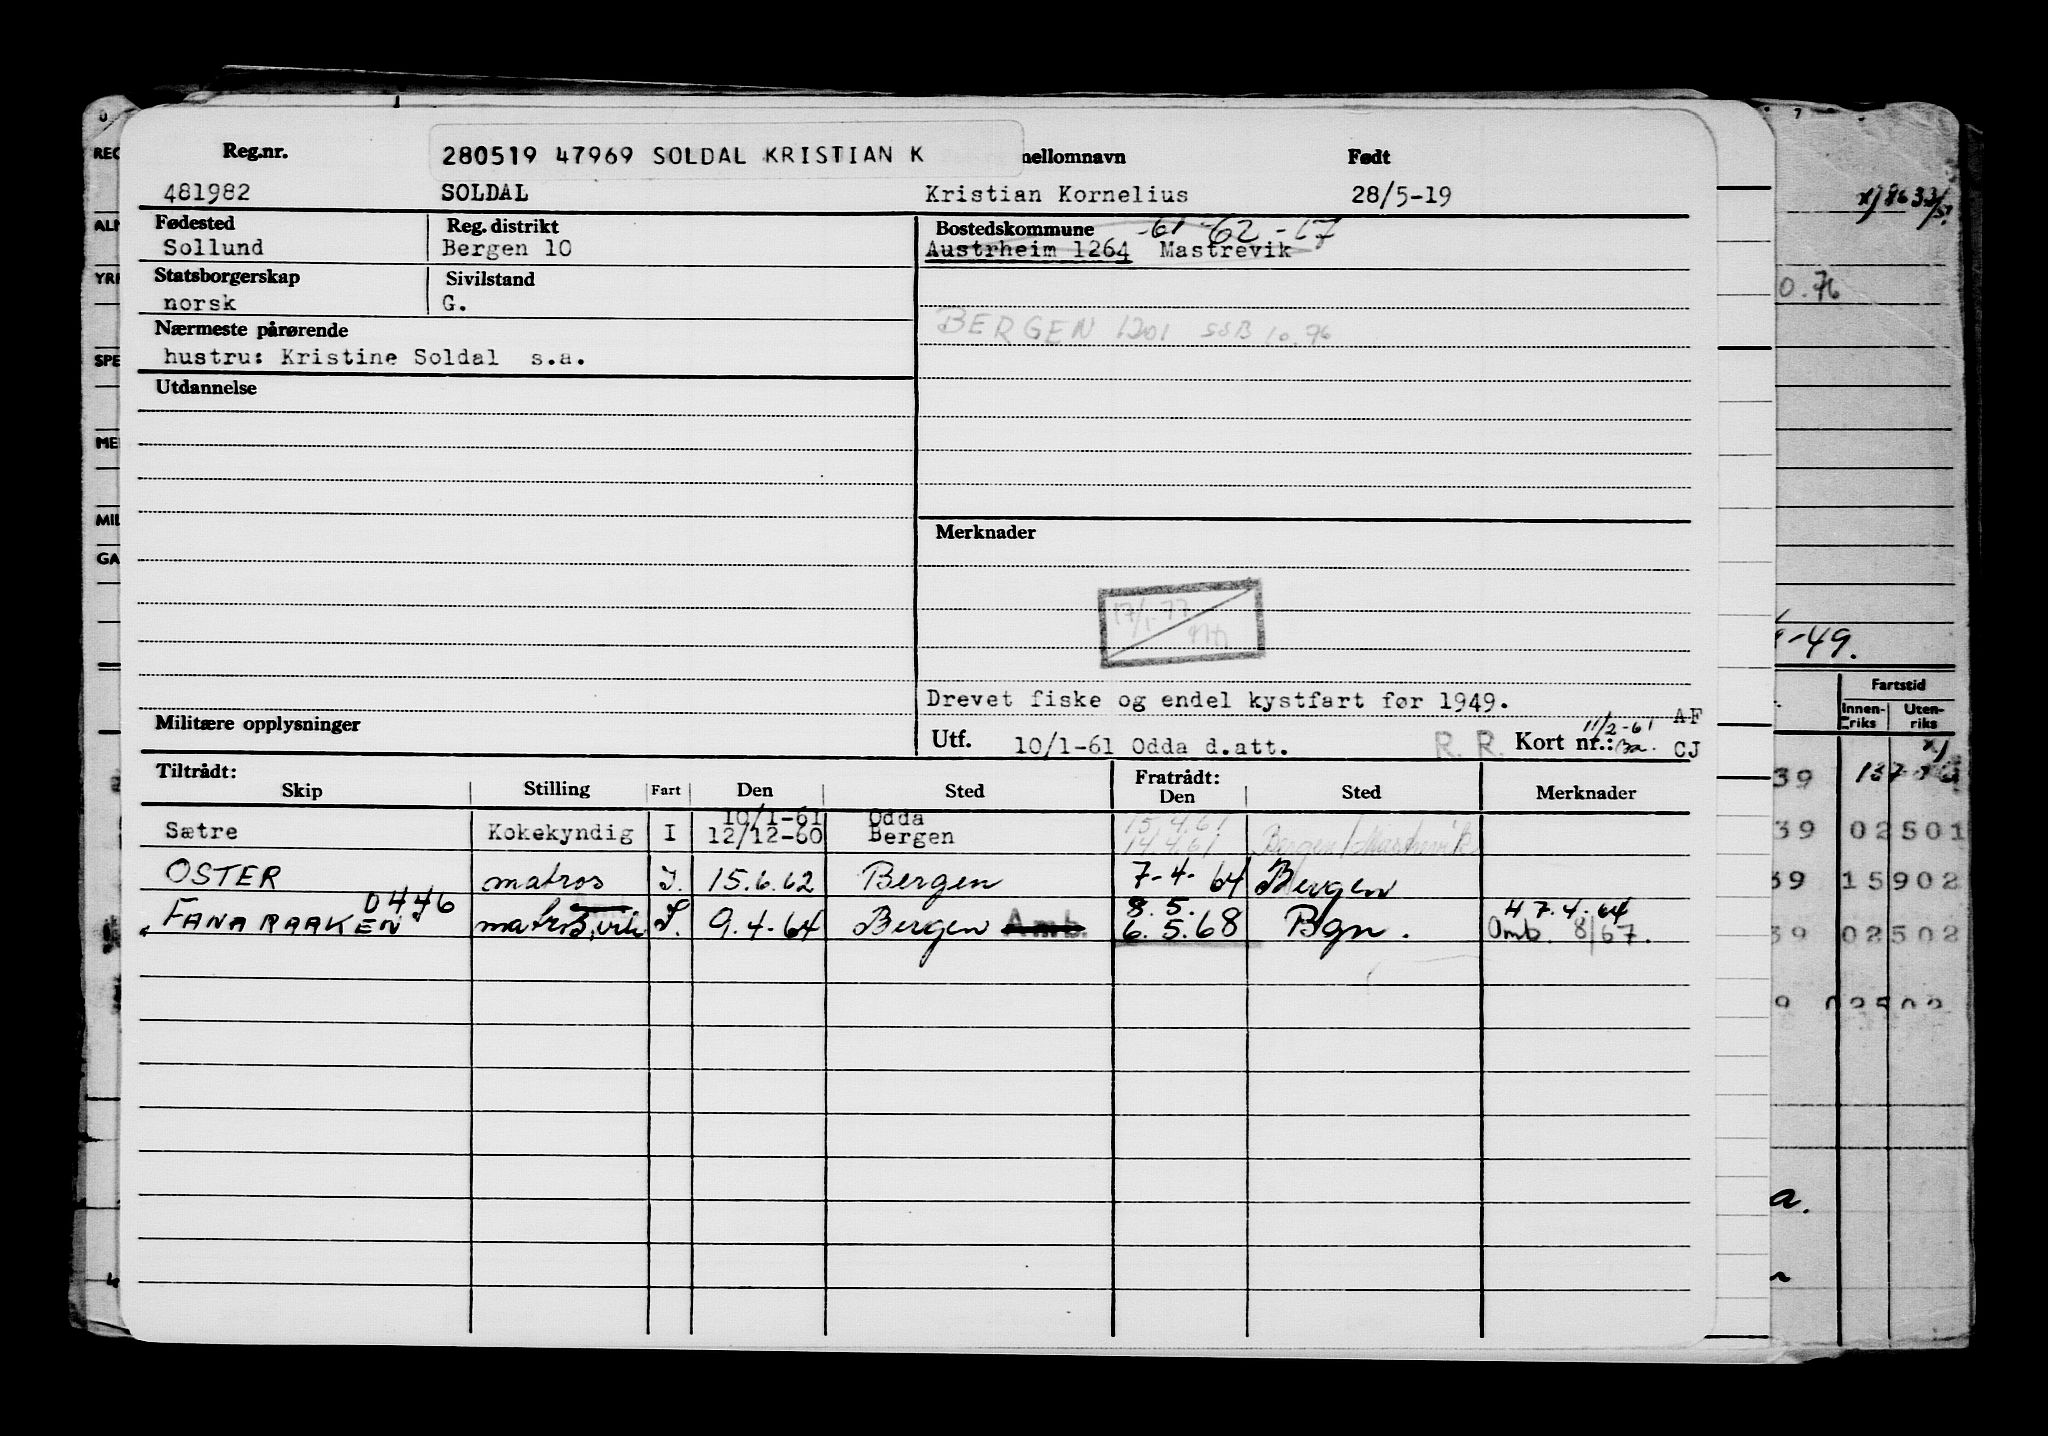 Reg.nr. 280519 47969 SOLDAL KRISTIAN K mellomnavn Født
481982 SOLDAL Kristian Kornelius 28/5-19
Fødested Reg. distrikt Bostedskommune -61 -62 -67
Sollund Bergen 10 Austrheim 1264 Mastrevik
Statsborgerskap Sivilstand
norsk G.
Nærmeste pårørende BERGEN 1201 SSB 10.76
hustru: Kristine Soldal s.a.
Utdannelse
Merknader
17/1-77
Drevet fiske og endel kystfart før 1949.
Militære opplysninger
Utf. 10/1-61 Odda d.att. R. R. Kort nr.: 11/2-61 AF CJ
Tiltrådt: Fratrådt:
Skip Stilling Fart Den Sted Den Sted Merknader
10/1-61 Odda 15.4.61
Sætre Kokekyndig I 12/12-60 Bergen 14.4.61 Bergen/Mastrevik
OSTER matros I. 15.6.62 Bergen 7-4-64 Bergen
0446 8. 5. 7.4.64
"FANARAAKEN" matros I. 9.4-64 Bergen Amb. 6.5.68 Bgn. Omb. 8/67.
REG
ALM
YRK
SPE
MIL
GA
0.76
-49.
Fartstid
Innen-riks Uten-riks
39 137
39 02501
39 15902
39 02502
9 02502
a.